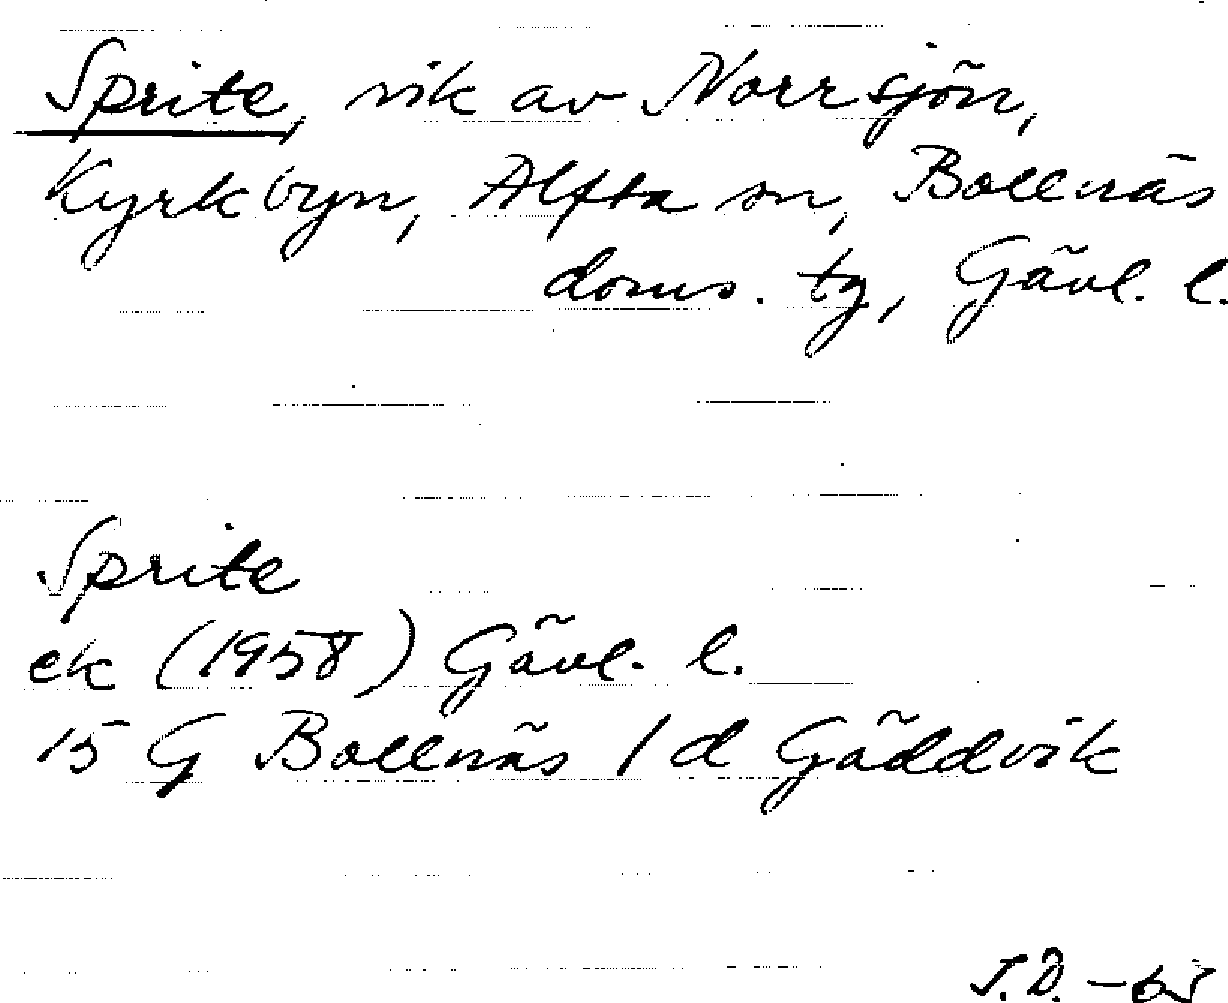 Sprite, vik av Norrsjön,
Kyrkbyn, Alfta sn, Bollnäs
doms. tg, Gävl. l.
Sprite
ek (1958) Gävl. l.
15 G Bollnäs 1 d Gäddvik